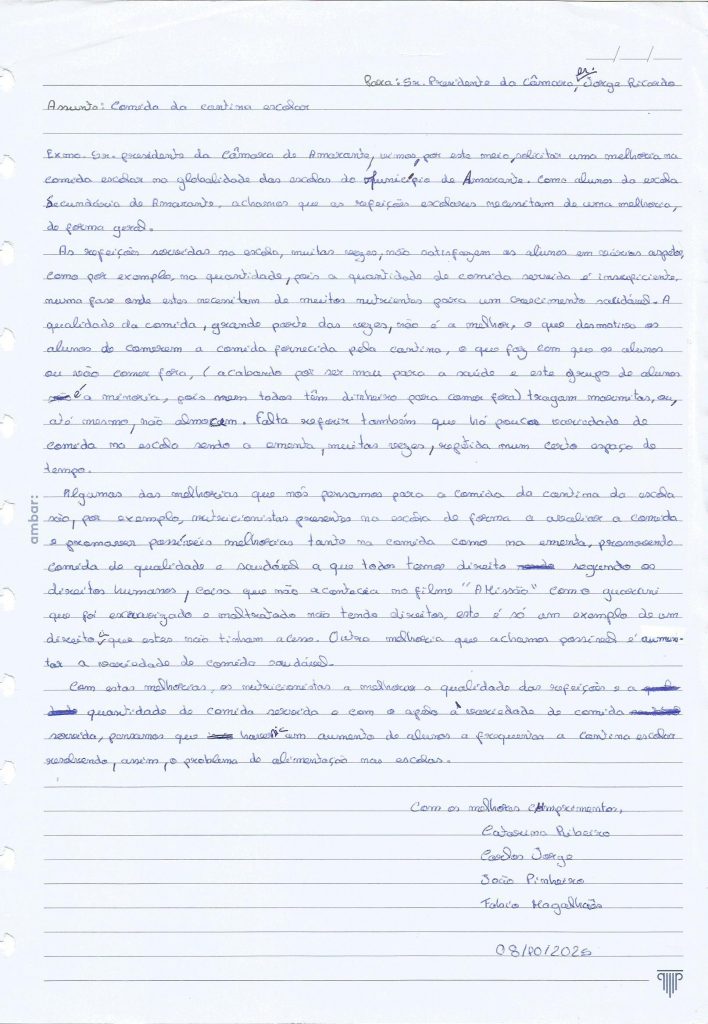 __/__/__
Para: Sr. Presidente da Câmara, er. Jorge Ricardo
Assunto: Comida da cantina escolar
Exmo. Sr. presidente da Câmara de Amarante, vimos, por este meio, solicitar uma melhoria na
comida escolar na globalidade das escolas do Município de Amarante. Como alunos da escola
Secundária de Amarante, achamos que as refeições escolares necessitam de uma melhoria,
de forma geral.
As refeições servidas na escola, muitas vezes, não satisfazem os alunos em vários aspetos,
como por exemplo, na quantidade, pois a quantidade de comida servida é insuficiente,
numa fase onde estes necessitam de muitos nutrientes para um crescimento saudável. A
qualidade da comida, grande parte das vezes, não é a melhor, o que desmotiva os
alunos de comerem a comida fornecida pela cantina, o que faz com que os alunos
ou vão comer fora, (acabando por ser mau para a saúde e este grupo de alunos
é a minoria, pois nem todos têm dinheiro para comer fora) tragam marmitas, ou,
até mesmo, não almoçem. Falta referir também que há pouca variedade de
comida na escola sendo a ementa, muitas vezes, repetida num certo espaço de
tempo.
Algumas das melhorias que nós pensamos para a comida da cantina da escola
são, por exemplo, nutricionistas presentes na escola de forma a avaliar a comida
e promover possíveis melhorias tanto na comida como na ementa, promovendo
comida de qualidade e saudável a que todos temos direito segundo os
direitos humanos, coisa que não acontecia no filme "A Missão" com o guarani
que foi escravizado e maltratado não tendo direitos, este é só um exemplo de um
direito a que estes não tinham acesso. Outra melhoria que achamos possível é aumen-
tar a variedade de comida saudável.
Com estas melhorias, os nutricionistas a melhorar a qualidade das refeições e a
quantidade de comida servida e com o apoio à variedade de comida
servida, pensamos que haveria um aumento de alunos a frequentar a cantina escolar
resolvendo, assim, o problema de alimentação nas escolas.
Com os melhores cumprimentos,
Catarina Ribeiro
Carlos Jorge
João Pinheiro
Fabio Magalhães
08/10/2025
ambar: